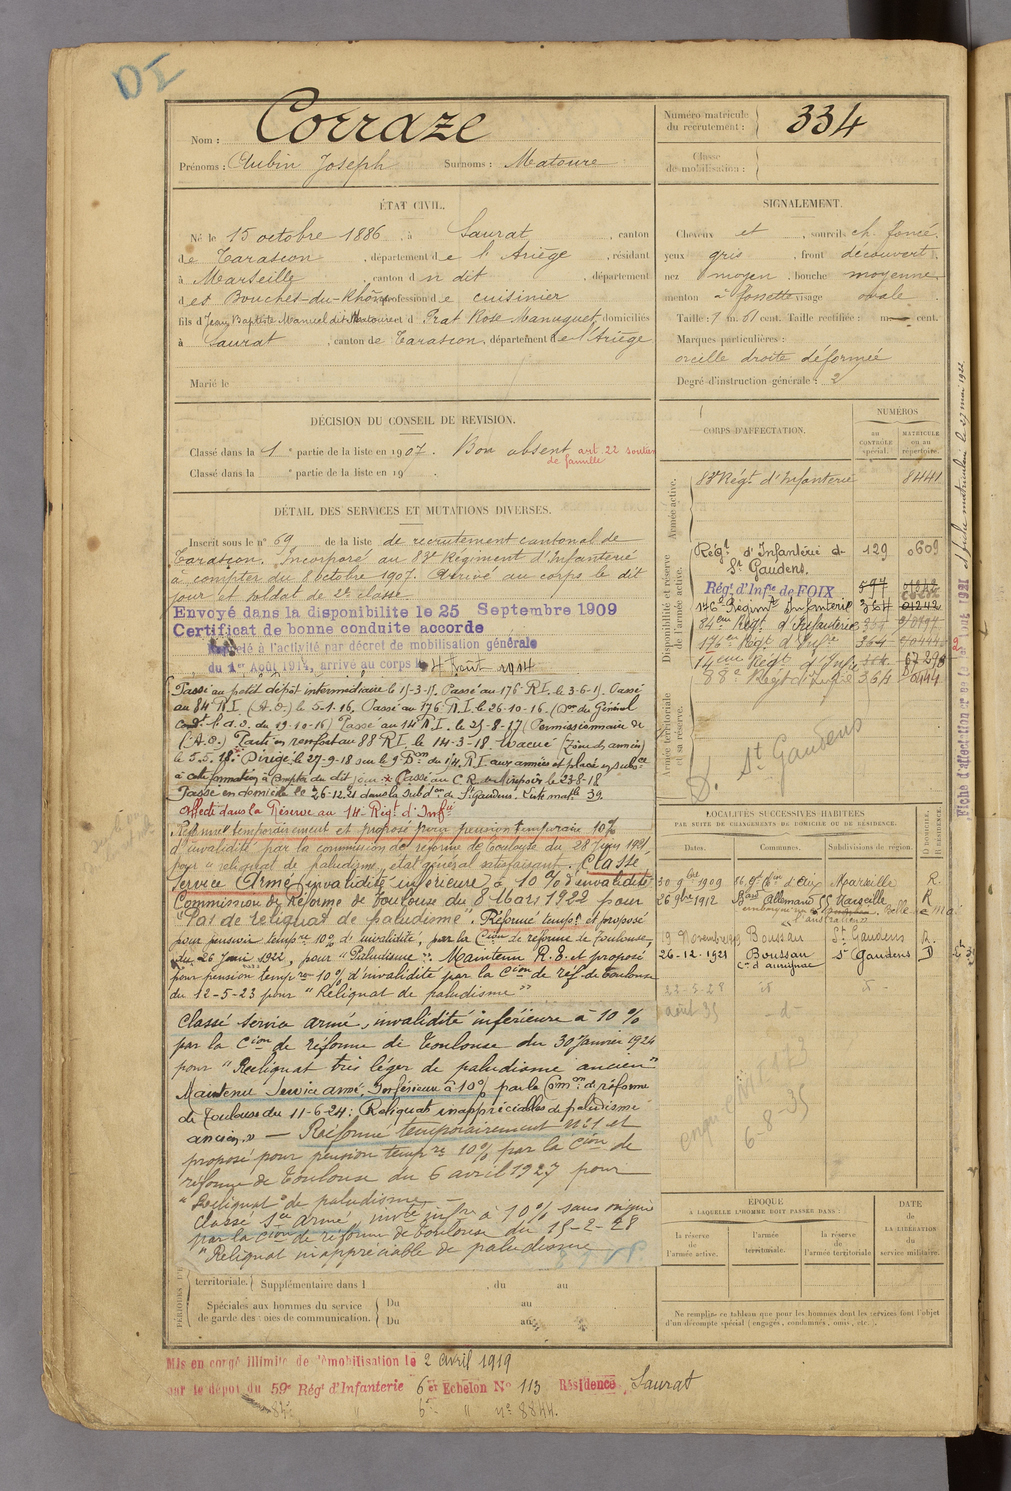 DI
Nom : Corraze
Prénoms : Aubin Joseph Surnoms : Matoure
Numéro matricule du recrutement : 334
Classe de mobilisation :
ÉTAT CIVIL.
Né le 15 octobre 1886, à Saurat, canton
de Tarascon, département de l'Ariège, résidant
à Marseille, canton du dit, département
des Bouches-du-Rhône profession de cuisinier
fils de Jean Baptiste Manuel dit Matoure et de Prat Rose Manuguet, domiciliés
à Saurat, canton de Tarascon, département de l'Ariège
Marié le
SIGNALEMENT.
Cheveux et, sourcils ch. foncé.
yeux gris, front découvert
nez moyen, bouche moyenne
menton à fossette visage ovale
Taille : 1 m. 61 cent. Taille rectifiée : m. cent.
Marques particulières :
oreille droite déformée
Degré d'instruction générale : 2
DÉCISION DU CONSEIL DE REVISION.
Classé dans la 1e partie de la liste en 1907. Bon absent art. 22 soutien
de famille
Classé dans la e partie de la liste en 19
CORPS D'AFFECTATION.
NUMÉROS
au CONTRÔLE spécial.
MATRICULE ou au répertoire.
Armée active.
83e Régt d'Infanterie 8441
Disponibilité et réserve de l'armée active.
Régt d'Infanterie de St Gaudens. 129 0609
Régt d'Infie de FOIX 597
146e Régiment Infanterie 364 01242
84em Régt d'Infanterie
176em Régt d'Infie 364
14eme Régt d'Infie
88e Régt d'Infie 364
Armée territoriale et sa réserve.
St Gaudens
DÉTAIL DES SERVICES ET MUTATIONS DIVERSES.
Inscrit sous le n° 69 de la liste de recrutement cantonal de
Tarascon. Incorporé au 83e Régiment d'Infanterie
à compter du 8 octobre 1907. Arrivé au corps le dit
jour et soldat de 2e classe.
Envoyé dans la disponibilite le 25 Septembre 1909
Certificat de bonne conduite accorde
Rappelé à l'activité par décret de mobilisation générale
du 1er Août 1914, arrivé au corps le 4 Août 1914
Passé au petit dépôt intermédiaire le 15-3-15. Passé au 176 R.I. le 3-6-15. Passé
au 84e R.I (A.O.) le 5-1-16. Passé au 176 R.I. le 26-10-16. (Don du Général
Comdt l.a.o. du 19-10-16) Passé au 14 R.I. le 25-8-17 (Permissionnaire de
l'A.O.) Parti en renfort au 88 RI. le 14-3-18. Evacué (Zone des armées)
le 5.5.18. Dirigé le 27-9-18 sur le 9 Bon du 14 R.I aux armées et placé en subce
à cette formation à compter du dit jour. Passé au C.R. de Mirepoix le 23-8-18
Passe en domicile le 26-12-21 dans la Subdon de St Gaudens. Liste matle 39.
Affecté dans la Réserve au 14e Régt d'Infie
Réformé temporairement et proposé pour pension temporaire 10%
d'invalidité par la commission de réforme de Toulouse du 28 Juin 1921
pour "reliquat de paludisme, état général satisfaisant. Classé
Service Armé (invalidité inférieure) à 10% d'invalidité
Commission de Réforme de Toulouse du 8 Mars 1922 pour
"Pas de reliquat de paludisme" Réformé tempt et proposé
pour pension tempre 10% d'invalidité, par la Cion de réforme de Toulouse,
du 26 Juin 1922, pour "Paludisme". Maintenu R.T. et proposé
pour pension tempre 10% d'invalidité par la Cion de réf. de Toulouse
du 12-5-23 pour "Reliquat de paludisme"
Classé service armé, invalidité inférieure à 10%
par la Cion de réforme de Toulouse du 30 Janvier 1924
pour "Reliquat très léger de paludisme ancien"
Maintenu Service armé, Inférieure à 10% par la Comon de réforme
de Toulouse du 11-6-24 : Reliquats inappréciables de paludisme
ancien." — Réformé temporairement n°1 et
proposé pour pension tempre 10% par la Cion de
réforme de Toulouse du 6 avril 1927 pour
"Reliquat" de paludisme —
Classé sce armé, invté infre à 10% sans origine
par la Cion de réforme de Toulouse du 15-2-28
"Reliquat inappréciable de paludisme
LOCALITÉS SUCCESSIVES HABITÉES
PAR SUITE DE CHANGEMENTS DE DOMICILE OU DE RÉSIDENCE.
Dates. Communes. Subdivisions de région. D DOMICILE, R RÉSIDENCE.
30 9bre 1909 Marseille R.
26 9bre 1912 Bard Allemand 55 Marseille R
19 Novembre 1919 Boussan St Gaudens R.
26-12-1921 Boussan St Gaudens D
Cton d'aurignac
22-5-28 id d-
août 35 —d—
6-8-35
ÉPOQUE
À LAQUELLE L'HOMME DOIT PASSER DANS :
la réserve de l'armée active.
l'armée territoriale.
la réserve de l'armée territoriale
DATE de LA LIBÉRATION du service militaire.
Ne remplir ce tableau que pour les hommes dont les services font l'objet
d'un décompte spécial (engagés, condamnés, omis, etc.)
territoriale. Supplémentaire dans l . du au
Spéciales aux hommes du service Du au
de garde des voies de communication. Du au
Mis en congé illimité de démobilisation le 2 avril 1919
par le dépôt du 59e Régt d'Infanterie 6e Echelon N° 113 Résidence, Saurat
6e " n° 8844.